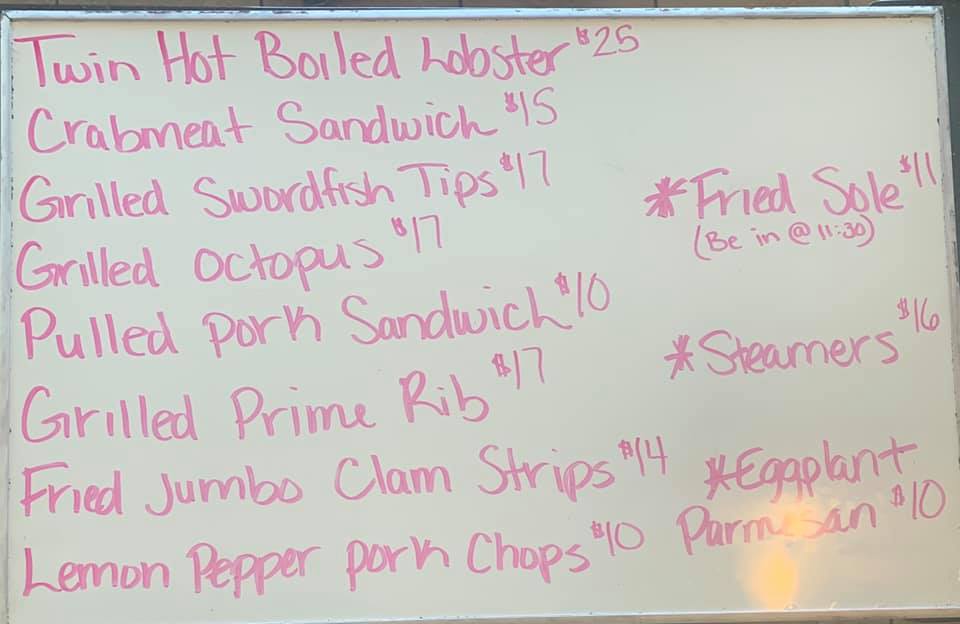 Twin Hot Boiled Lobster $25
Crabmeat Sandwich $15
Grilled Swordfish Tips $17
Grilled Octopus $17
Pulled Pork Sandwich $10
Grilled Prime Rib $17
Fried Jumbo Clam Strips $14
Lemon Pepper Pork Chops $10
*Fried Sole $11
(Be in @ 11:30)
*Steamers $16
*Eggplant
Parmesan $10